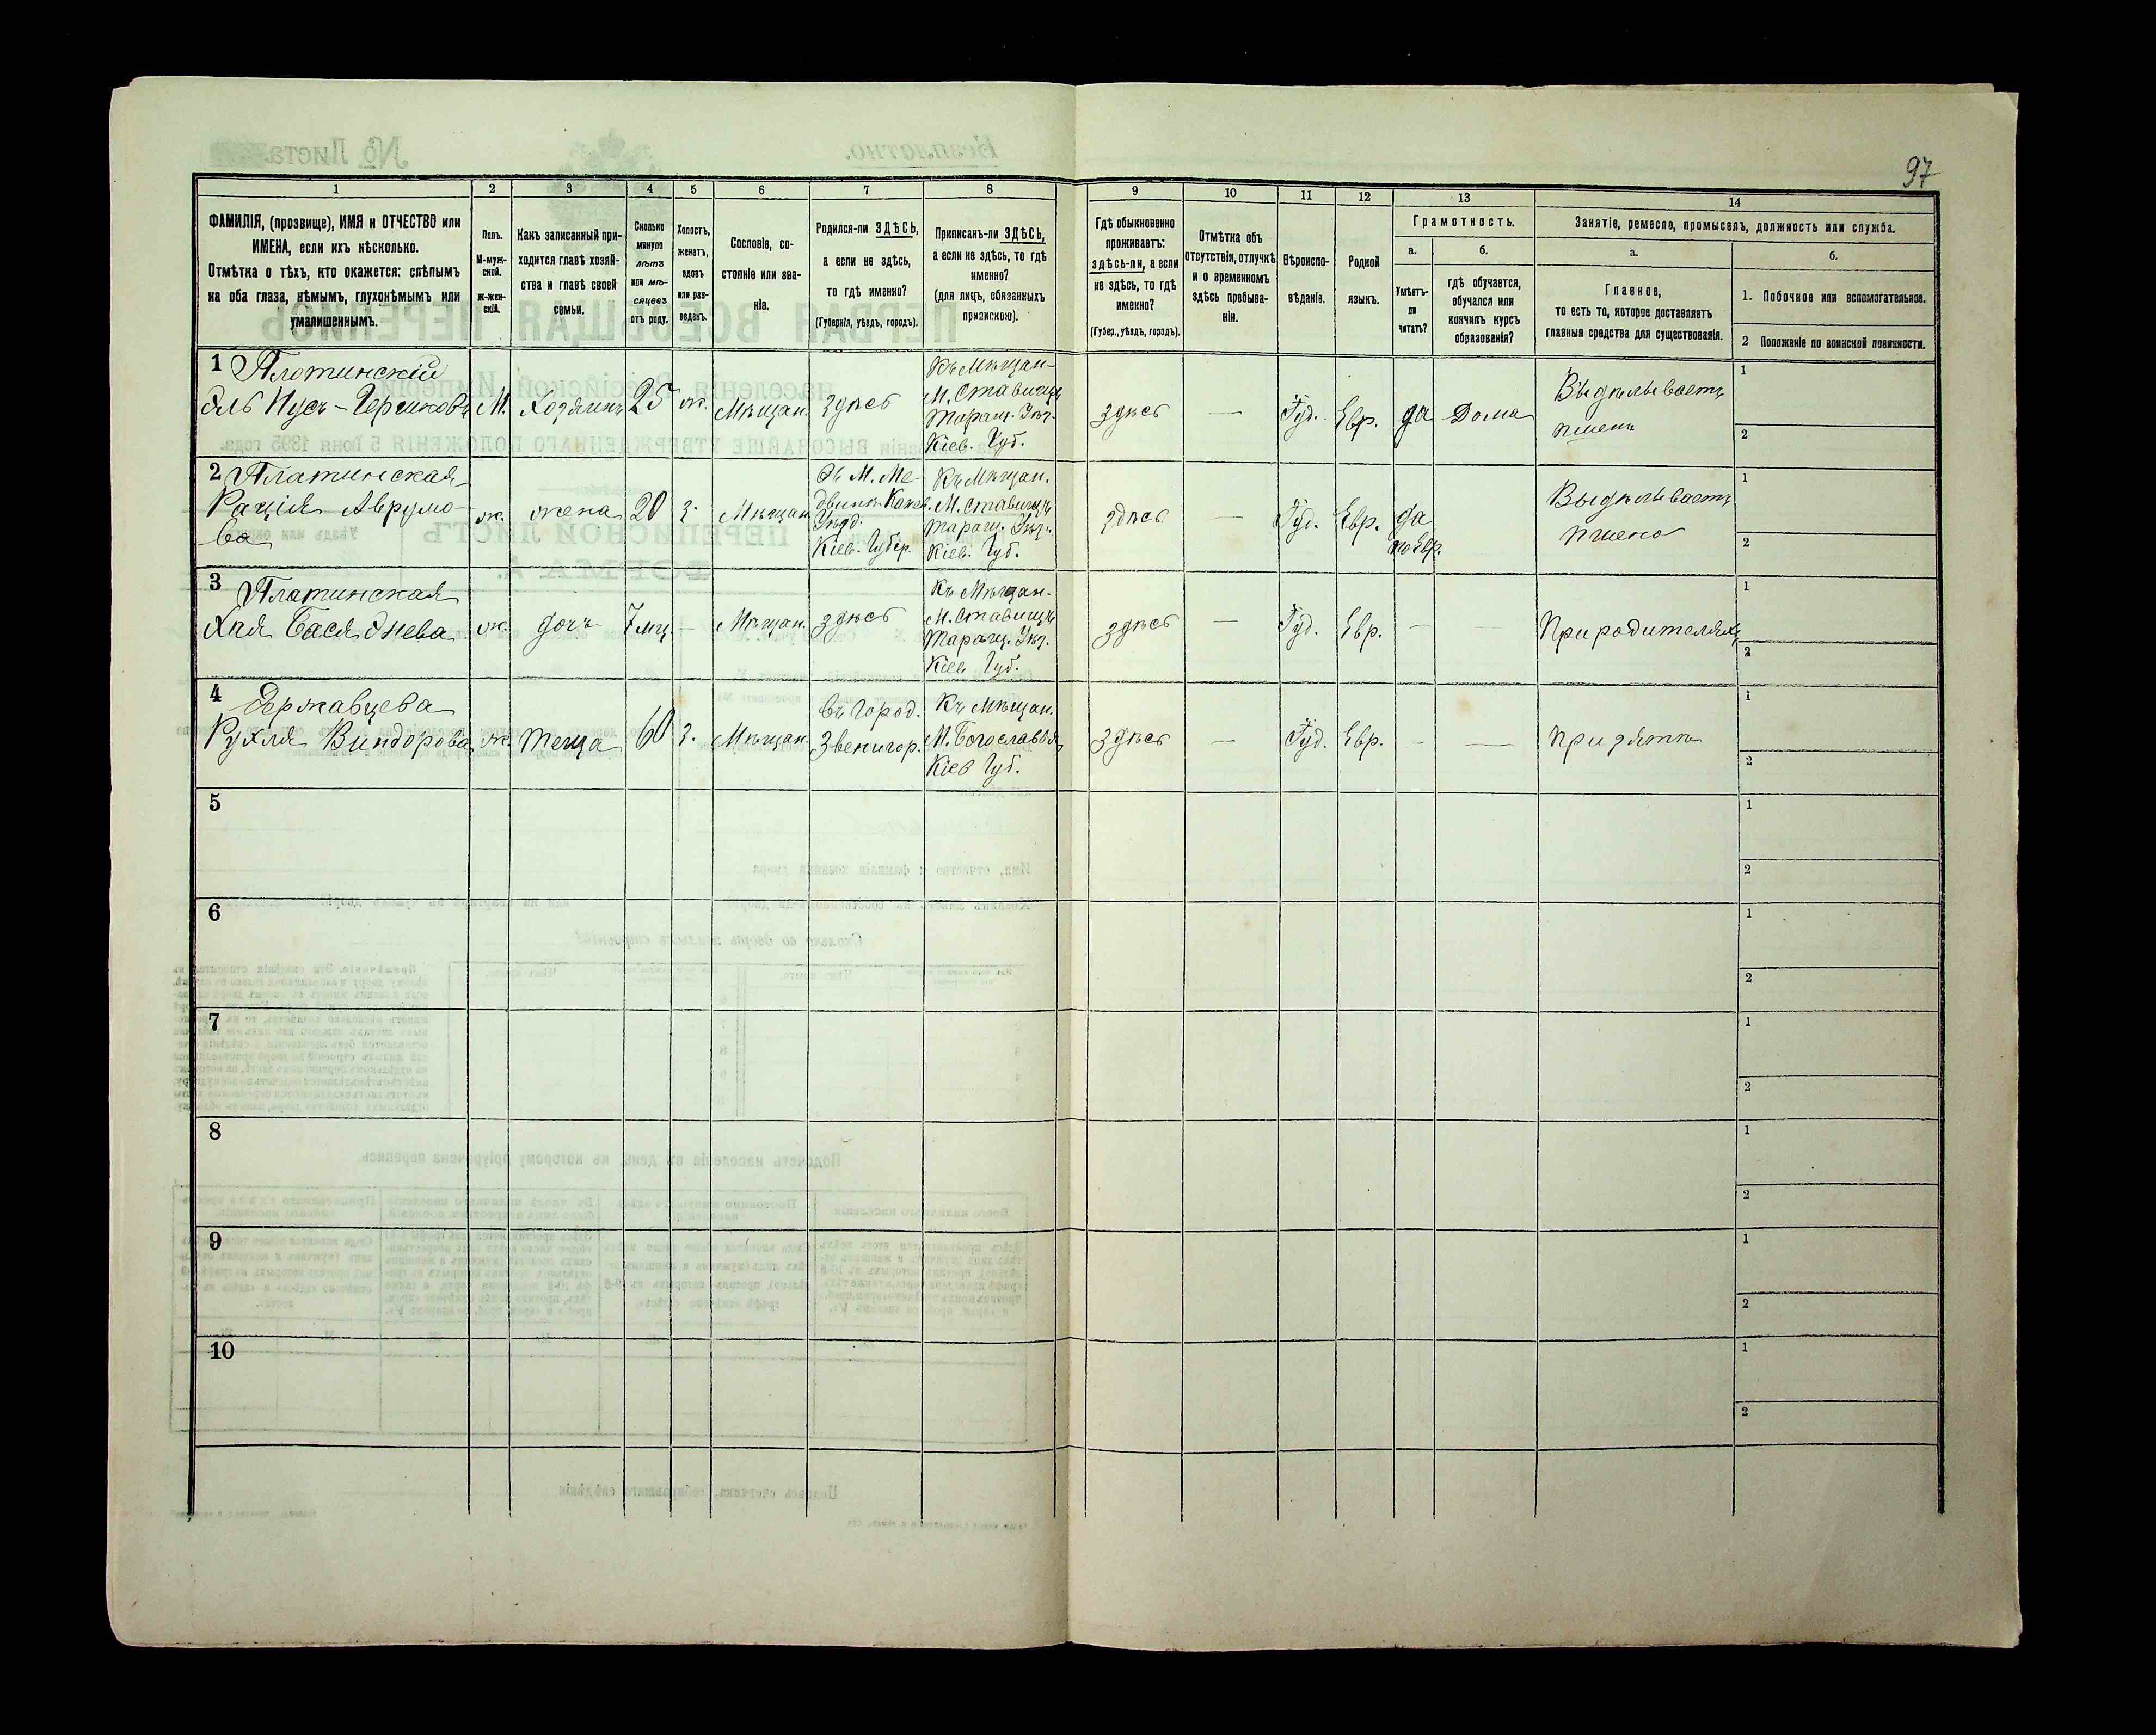 97
1 2 3 4 5 6 7 8 9 10 11 12 13 14
ФАМИЛІЯ, (прозвище), ИМЯ и ОТЧЕСТВО или
ИМЕНА, если ихъ нѣсколько.
Отмѣтка о тѣхъ, кто окажется: слѣпымъ
на оба глаза, нѣмымъ, глухонѣмымъ или
умалишеннымъ.
Полъ.
М-муж-
ской.
ж-жен-
скій.
Какъ записанный при-
ходится главѣ хозяй-
ства и главѣ своей
семьи.
Сколько
минуло
лѣтъ
или мѣ-
сяцевъ
отъ роду.
Холостъ,
женатъ,
вдовъ
или раз-
веденъ.
Сословіе, со-
стояніе или зва-
ніе.
Родился-ли ЗДѢСЬ,
а если не здѣсь,
то гдѣ именно?
(Губернія, уѣздъ, городъ).
Приписанъ-ли ЗДѢСЬ,
а если не здѣсь, то гдѣ
именно?
(для лицъ, обязанныхъ
припискою).
Гдѣ обыкновенно
проживаетъ:
здѣсь-ли, а если
не здѣсь, то гдѣ
именно?
(Губер., уѣздъ, городъ).
Отмѣтка объ
отсутствіи, отлучкѣ
и о временномъ
здѣсь пребыва-
ніи.
Вѣроиспо-
вѣданіе.
Родной
языкъ.
Грамотность.
а.
Умѣетъ-
ли
читать?
б.
гдѣ обучается,
обучался или
кончилъ курсъ
образованія?
Занятіе, ремесло, промыселъ, должность или служба.
а.
Главное,
то есть то, которое доставляетъ
главныя средства для существованія.
б.
1. Побочное или вспомогательное.
2 Положеніе по воинской повинности.
1 Платинскій
М. Хозяинъ 25 ж. Мѣщан. Здѣсь
Къ Мѣщан-
М. Ставищъ
Таращ. Уѣз.
Кіев. Губ.
здѣсь — Іуд. Евр. да Дома
Выдѣлываетъ
пшено
1
2
2 Платинская
Рация Аврумо-
ва
ж. жена 20 З. Мѣщан.
Въ М. Ме-
двин. Канев.
Уѣзд.
Кіев. Губер.
Къ Мѣщан.
М. Ставищъ
Таращ. Уѣз.
Кіев. Губ.
здѣсь — Іуд. Евр. да
по Евр.
Выдѣлываетъ
пшено
1
2
3 Платинская
Хая Бася
ж. дочь 7 мц. — Мѣщан. здѣсь
Къ Мѣщан-
М. Ставищъ
Таращ. Уѣз.
Кіев. Губ.
здѣсь — Іуд. Евр. — —
При родителяхъ
1
2
4 Державцева
Рухля
ж. теща 60 З. Мѣщан.
Въ Город.
Звенигор.
Къ Мѣщан.
М. Богославья
Кіев Губ.
здѣсь — Іуд. Евр. — —
При зятѣ
1
2
5
1
2
6
1
2
7
1
2
8
1
2
9
1
2
10
1
2